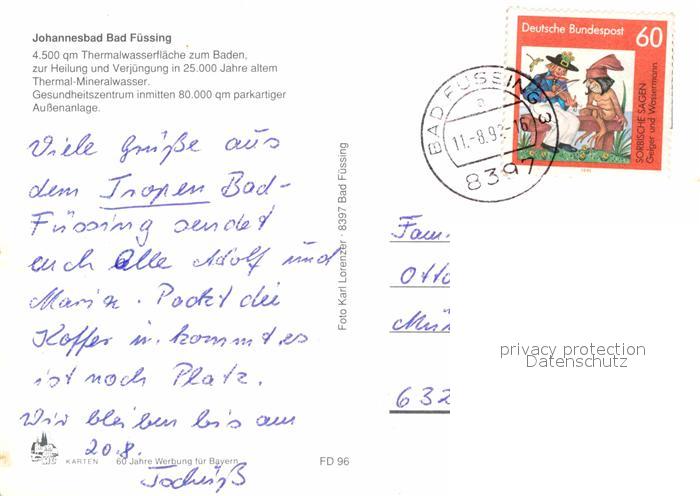 Johannesbad Bad Füssing
4.500 qm Thermalwasserfläche zum Baden,
zur Heilung und Verjüngung in 25.000 Jahre altem
Thermal-Mineralwasser.
Gesundheitszentrum inmitten 80.000 qm parkartiger
Außenanlage.
Viele Grüße aus
dem Tropen Bad-
Füssing sendet
euch Alle Adolf und
Maria. Packt die
Koffer u. kommt es
ist noch Platz.
Wir bleiben bis am
20.8.
Tschüß
KARTEN
60 Jahre Werbung für Bayern
FD 96
Foto Karl Lorenzer · 8397 Bad Füssing
Deutsche Bundespost 60
SORBISCHE SAGEN
Geiger und Wassermann
BAD FÜSSING 3
a
11.-8.92-16
8397
Fam.
Otto
Mün
632
privacy protection
Datenschutz